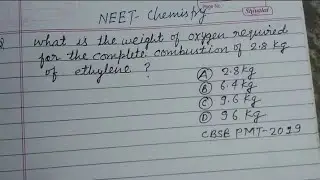 NEET- Chemistry
What is the weight of oxygen required
for the complete combustion of 2.8 kg
of ethylene ?
(A) 2.8 kg
(B) 6.4 kg
(C) 9.6 kg
(D) 96 kg
CBSE PMT-2019